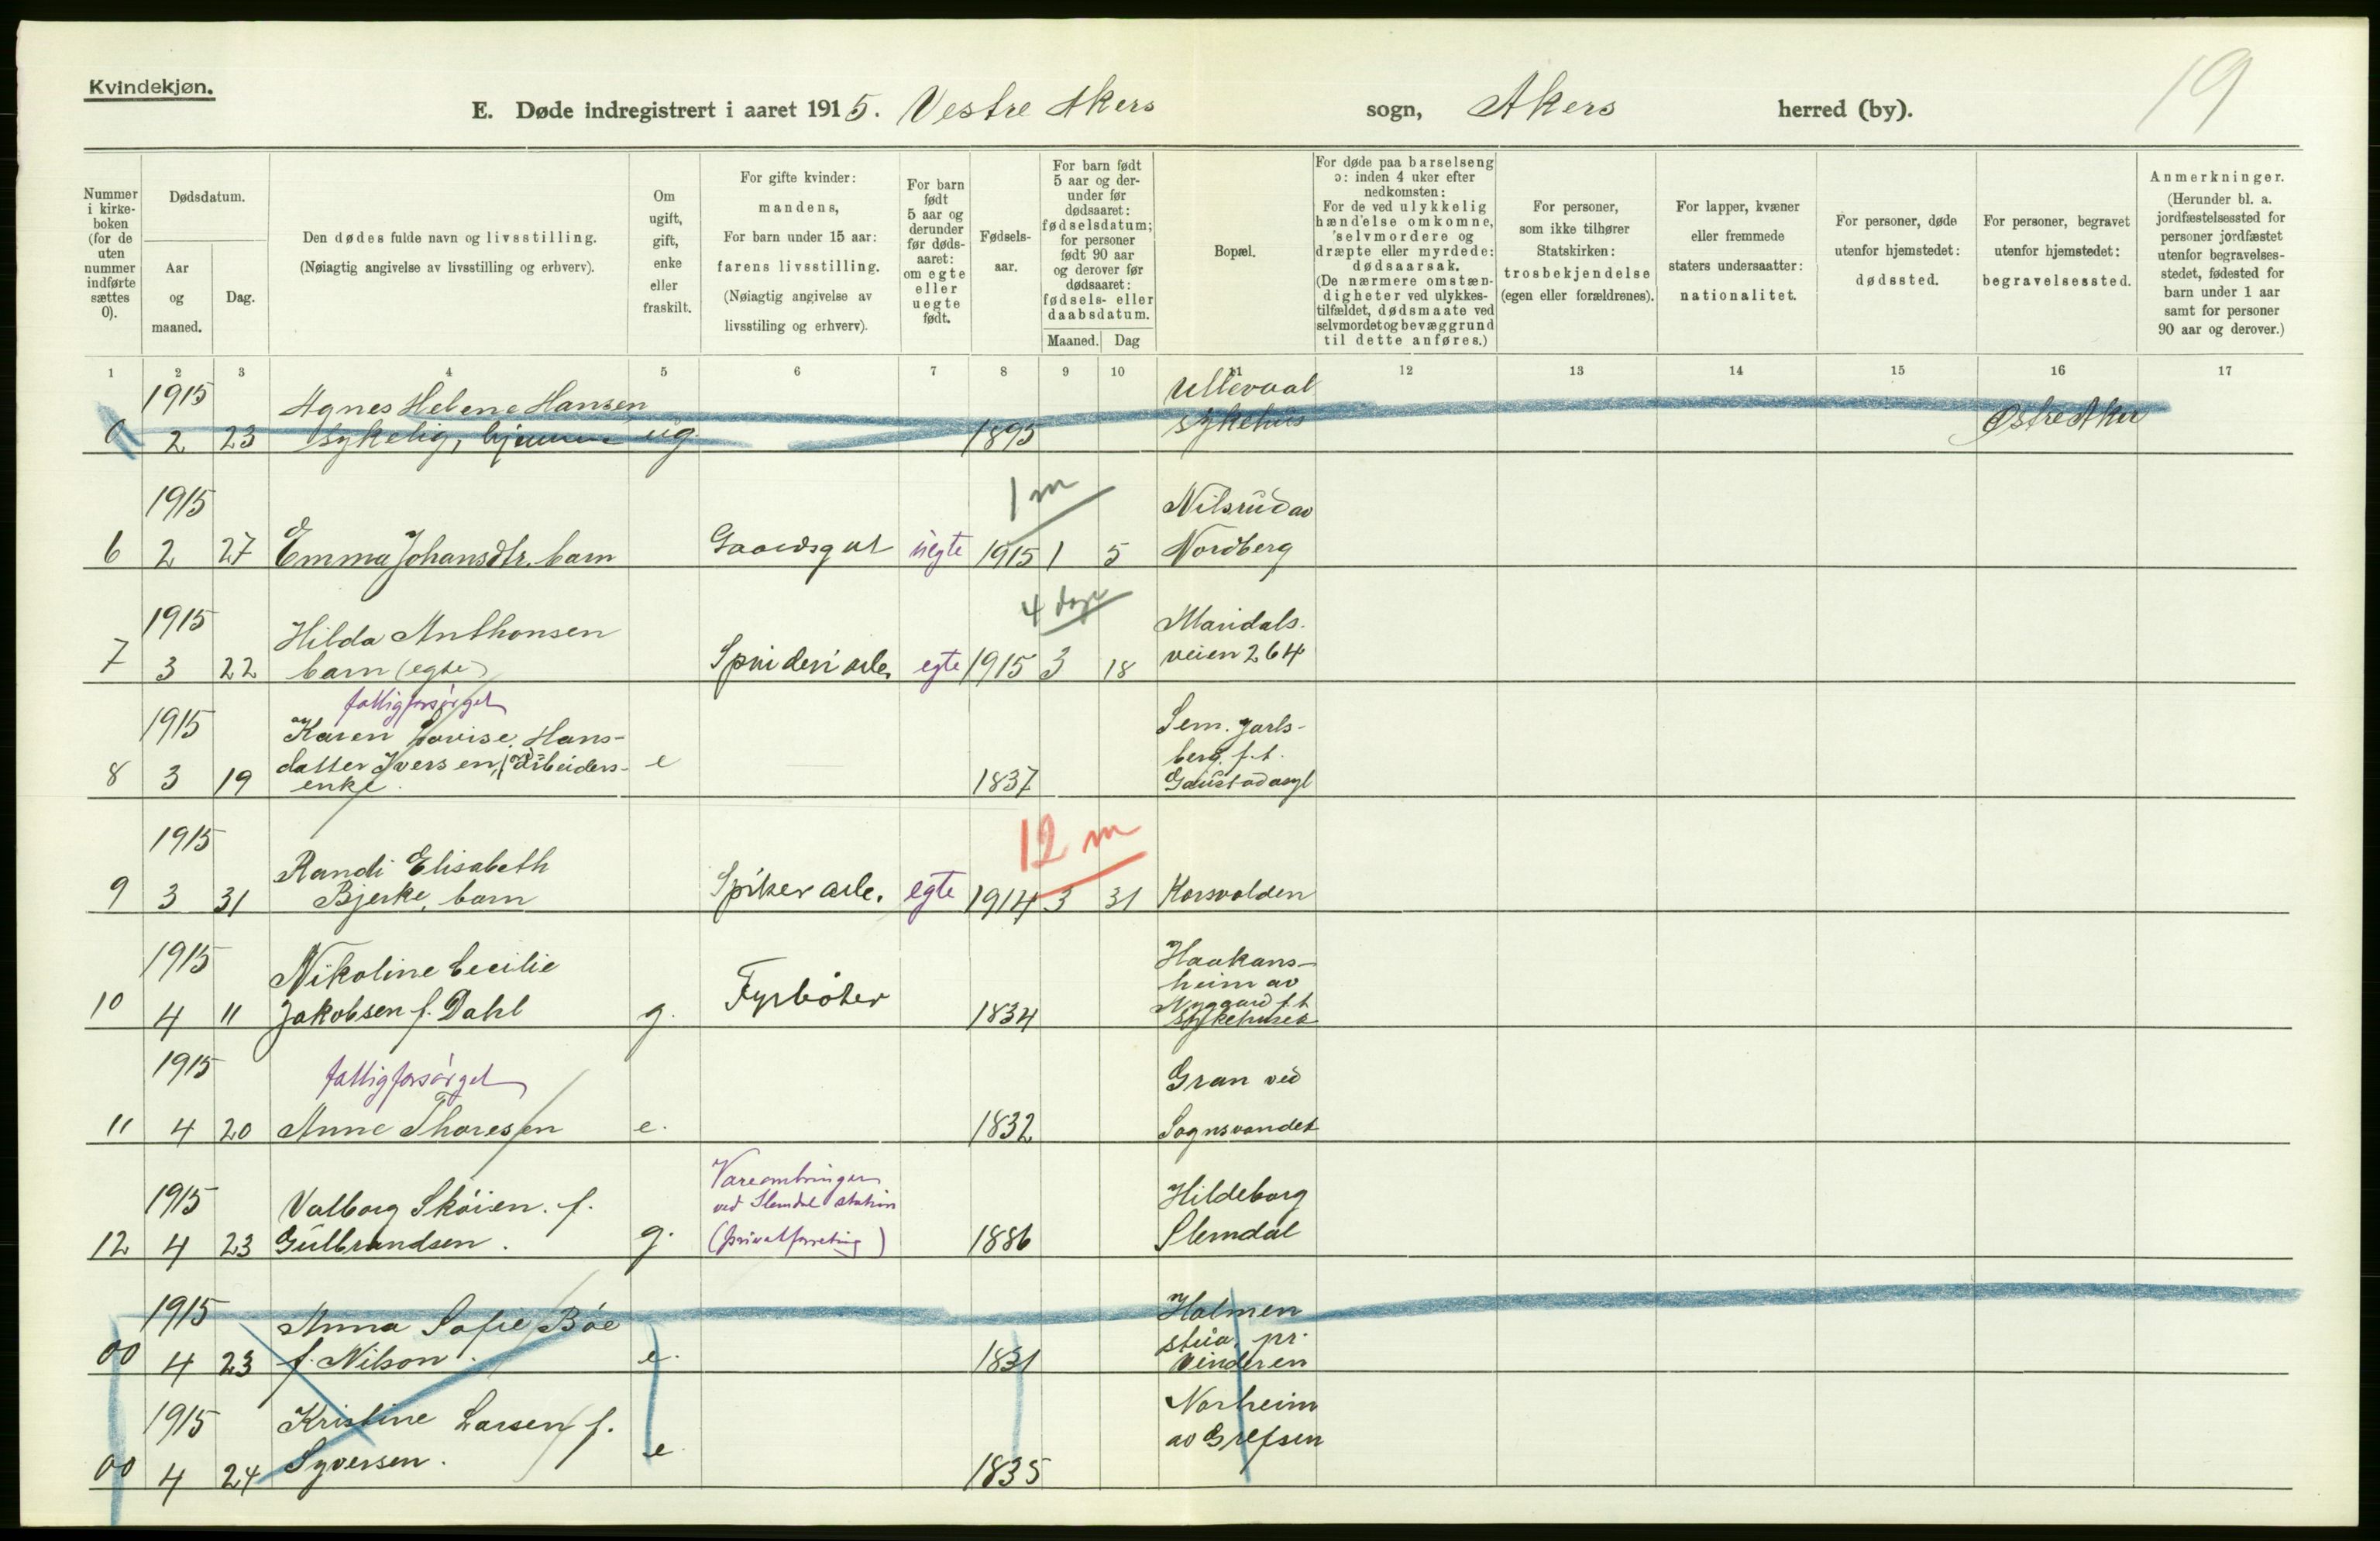 Kvindekjøn.
19
E. Døde indregistrert i aaret 1915. Vestre Akers sogn, Akers herred (by).
Nummer i kirke-boken (for de uten nummer indførte sættes 0).
Dødsdatum.
Aar og maaned.
Dag.
Den dødes fulde navn og livsstilling.
(Nøiagtig angivelse av livsstilling og erhverv).
Om ugift, gift, enke eller fraskilt.
For gifte kvinder: mandens,
For barn under 15 aar: farens livsstilling.
(Nøiagtig angivelse av livsstiling og erhverv).
For barn født 5 aar og derunder før døds-aaret: om egte eller uegte født.
Fødsels-aar.
For barn født 5 aar og der-under før dødsaaret: fødselsdatum; for personer født 90 aar og derover før dødsaaret: fødsels- eller daabsdatum.
Maaned. Dag
Bopæl.
For døde paa barselseng ɔ: inden 4 uker efter nedkomsten:
For de ved ulykkelig hændelse omkomne, selvmordere og dræpte eller myrdede: dødsaarsak.
(De nærmere omstæn-digheter ved ulykkes-tilfældet, dødsmaate ved selvmordet og bevæggrund til dette anføres.)
For personer, som ikke tilhører Statskirken: trosbekjendelse (egen eller forældrenes).
For lapper, kvæner eller fremmede staters undersaatter: nationalitet.
For personer, døde utenfor hjemstedet: dødssted.
For personer, begravet utenfor hjemstedet: begravelsessted.
Anmerkninger.
(Herunder bl. a. jordfæstelsessted for personer jordfæstet utenfor begravelses-stedet, fødested for barn under 1 aar samt for personer 90 aar og derover.)
1 2 3 4 5 6 7 8 9 10 11 12 13 14 15 16 17
1915 Agnes Helene Hansen Ullevaal
0 2 23 sykelig, hjemme ug. 1895 sykehus Østre Aker
1915 1 m Nilsrud av
6 2 27 Emma Johansdtr. barn Gaardsgut uegte 1915 1 5 Nordberg
1915 Hilda Anthonsen 4 dage Maridals-
7 3 22 barn (egte) Spinderiarb. egte 1915 3 18 veien 264
fattigforsørget
1915 Karen Lovise Hans- Sem. Jarls-
datter Iversen, arbeiders- e berg, f.t.
8 3 19 enke. 1837 Gaustad asyl
1915 Randi Elisabeth 12 m
9 3 31 Bjerke, barn Spikerarb. egte 1914 3 31 Korsvolden
1915 Nikoline Cecilie Haakans-
heim av
Nygaard f.t.
10 4 11 Jakobsen f. Dahl g. Fyrbøter 1834 sykehuset
1915 fattigforsørget Gran ved
11 4 20 Anne Thoresen e. 1832 Sognsvandet
Vareombringer
1915 Valborg Skøien. f. ved Slemdal station Hildeborg
12 4 23 Gulbrandsen. g. (privatforretning) 1886 Slemdal
1915 Anna Sofie Bøe Holmen
stua, pr.
00 4 23 f. Nilson. e. 1831 Vinderen
1915 Kristine Larsen f. Norheim
av Grefsen
00 4 24 Syversen. e 1835